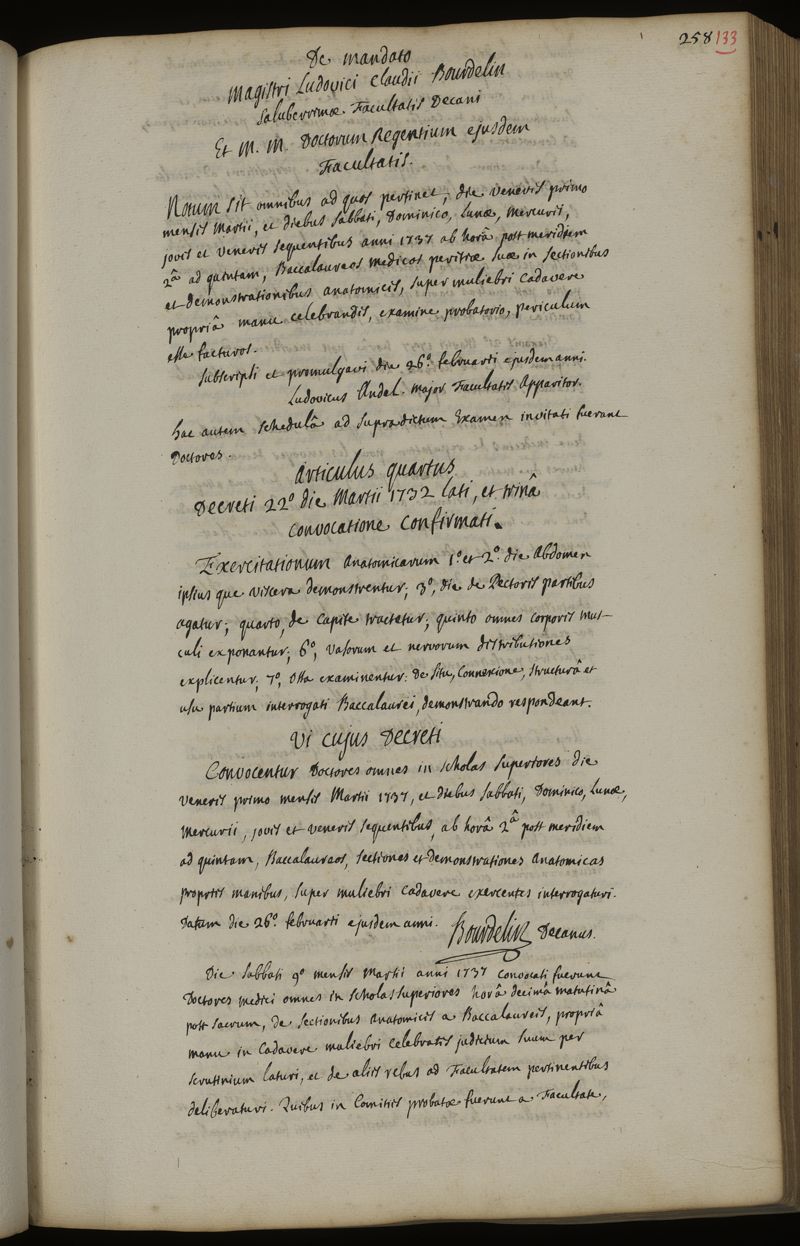 258 133
De mandato
Magistri Ludovici Claudii Bourdelin
Saluberrimæ Facultatis Decani
Et M. M. Doctorum Regentium ejusdem
Facultatis.
Notum sit omnibus ad quos pertinet, die Veneris primo
mensis Martii, et diebus Sabbati, Dominico, Lunæ, Mercurii,
jovis et Veneris sequentibus anni 1737 ab horâ post meridiem
2â ad quintam, Baccalaureos medicos peritiæ suæ in sectionibus
et demonstrationibus anatomicis, super muliebri Cadavere
propriâ manu celebrandis, examine probatorio, periculum
esse facturos.
Subscripsi et promulgavi die 26º. februarii ejusdem anni.
Ludovicus Andel. Major Facultatis Apparitor.
hac autem schedulâ ad supradictum Examen invitati fuerunt
Doctores.
Articulus quartus
Decreti 22º die Martii 1732 lati, et trinâ
Convocatione Confirmati.
Exercitationum Anatomicarum 1º. et 2º. die Abdomen
ipsius que viscera demonstrentur, 3º, die de Pectoris partibus
agatur; quarto, de Capite tractetur; quinto omnes Corporis mus-
culi exponantur; 6º, vasorum et nervorum distributiones
explicentur; 7º, Ossa examinentur: De Situ, Connexione, structurâ et
usu partium interrogati Baccalaurei, demonstrando respondeant.
Vi Cujus Decreti
Convocentur Doctores omnes in scholas superiores die
Veneris primo mensis Martii 1737, et diebus Sabbati, Dominico, Lunæ,
Mercurii, jovis et Veneris sequentibus, ab horâ 2â post meridiem
ad quintam, Baccalaureos, sectiones et demonstrationes Anatomicas
propriis manibus, super muliebri Cadavere exercentes interrogaturi.
Datum die 26º. februarii ejusdem anni. Bourdelin Decanus.
Die Sabbati 9º mensis Martii anni 1737 Convocati fuerunt
Doctores medici omnes in scholas superiores horâ decimâ matutinâ
post sacrum, de sectionibus Anatomicis a Baccalaureis, propriâ
manu in Cadavere muliebri Celebratis judicium suum per
scrutinium laturi, et de aliis rebus ad Facultatem pertinentibus
deliberaturi. Quibus in Comitiis probatæ fuerunt a Facultate,